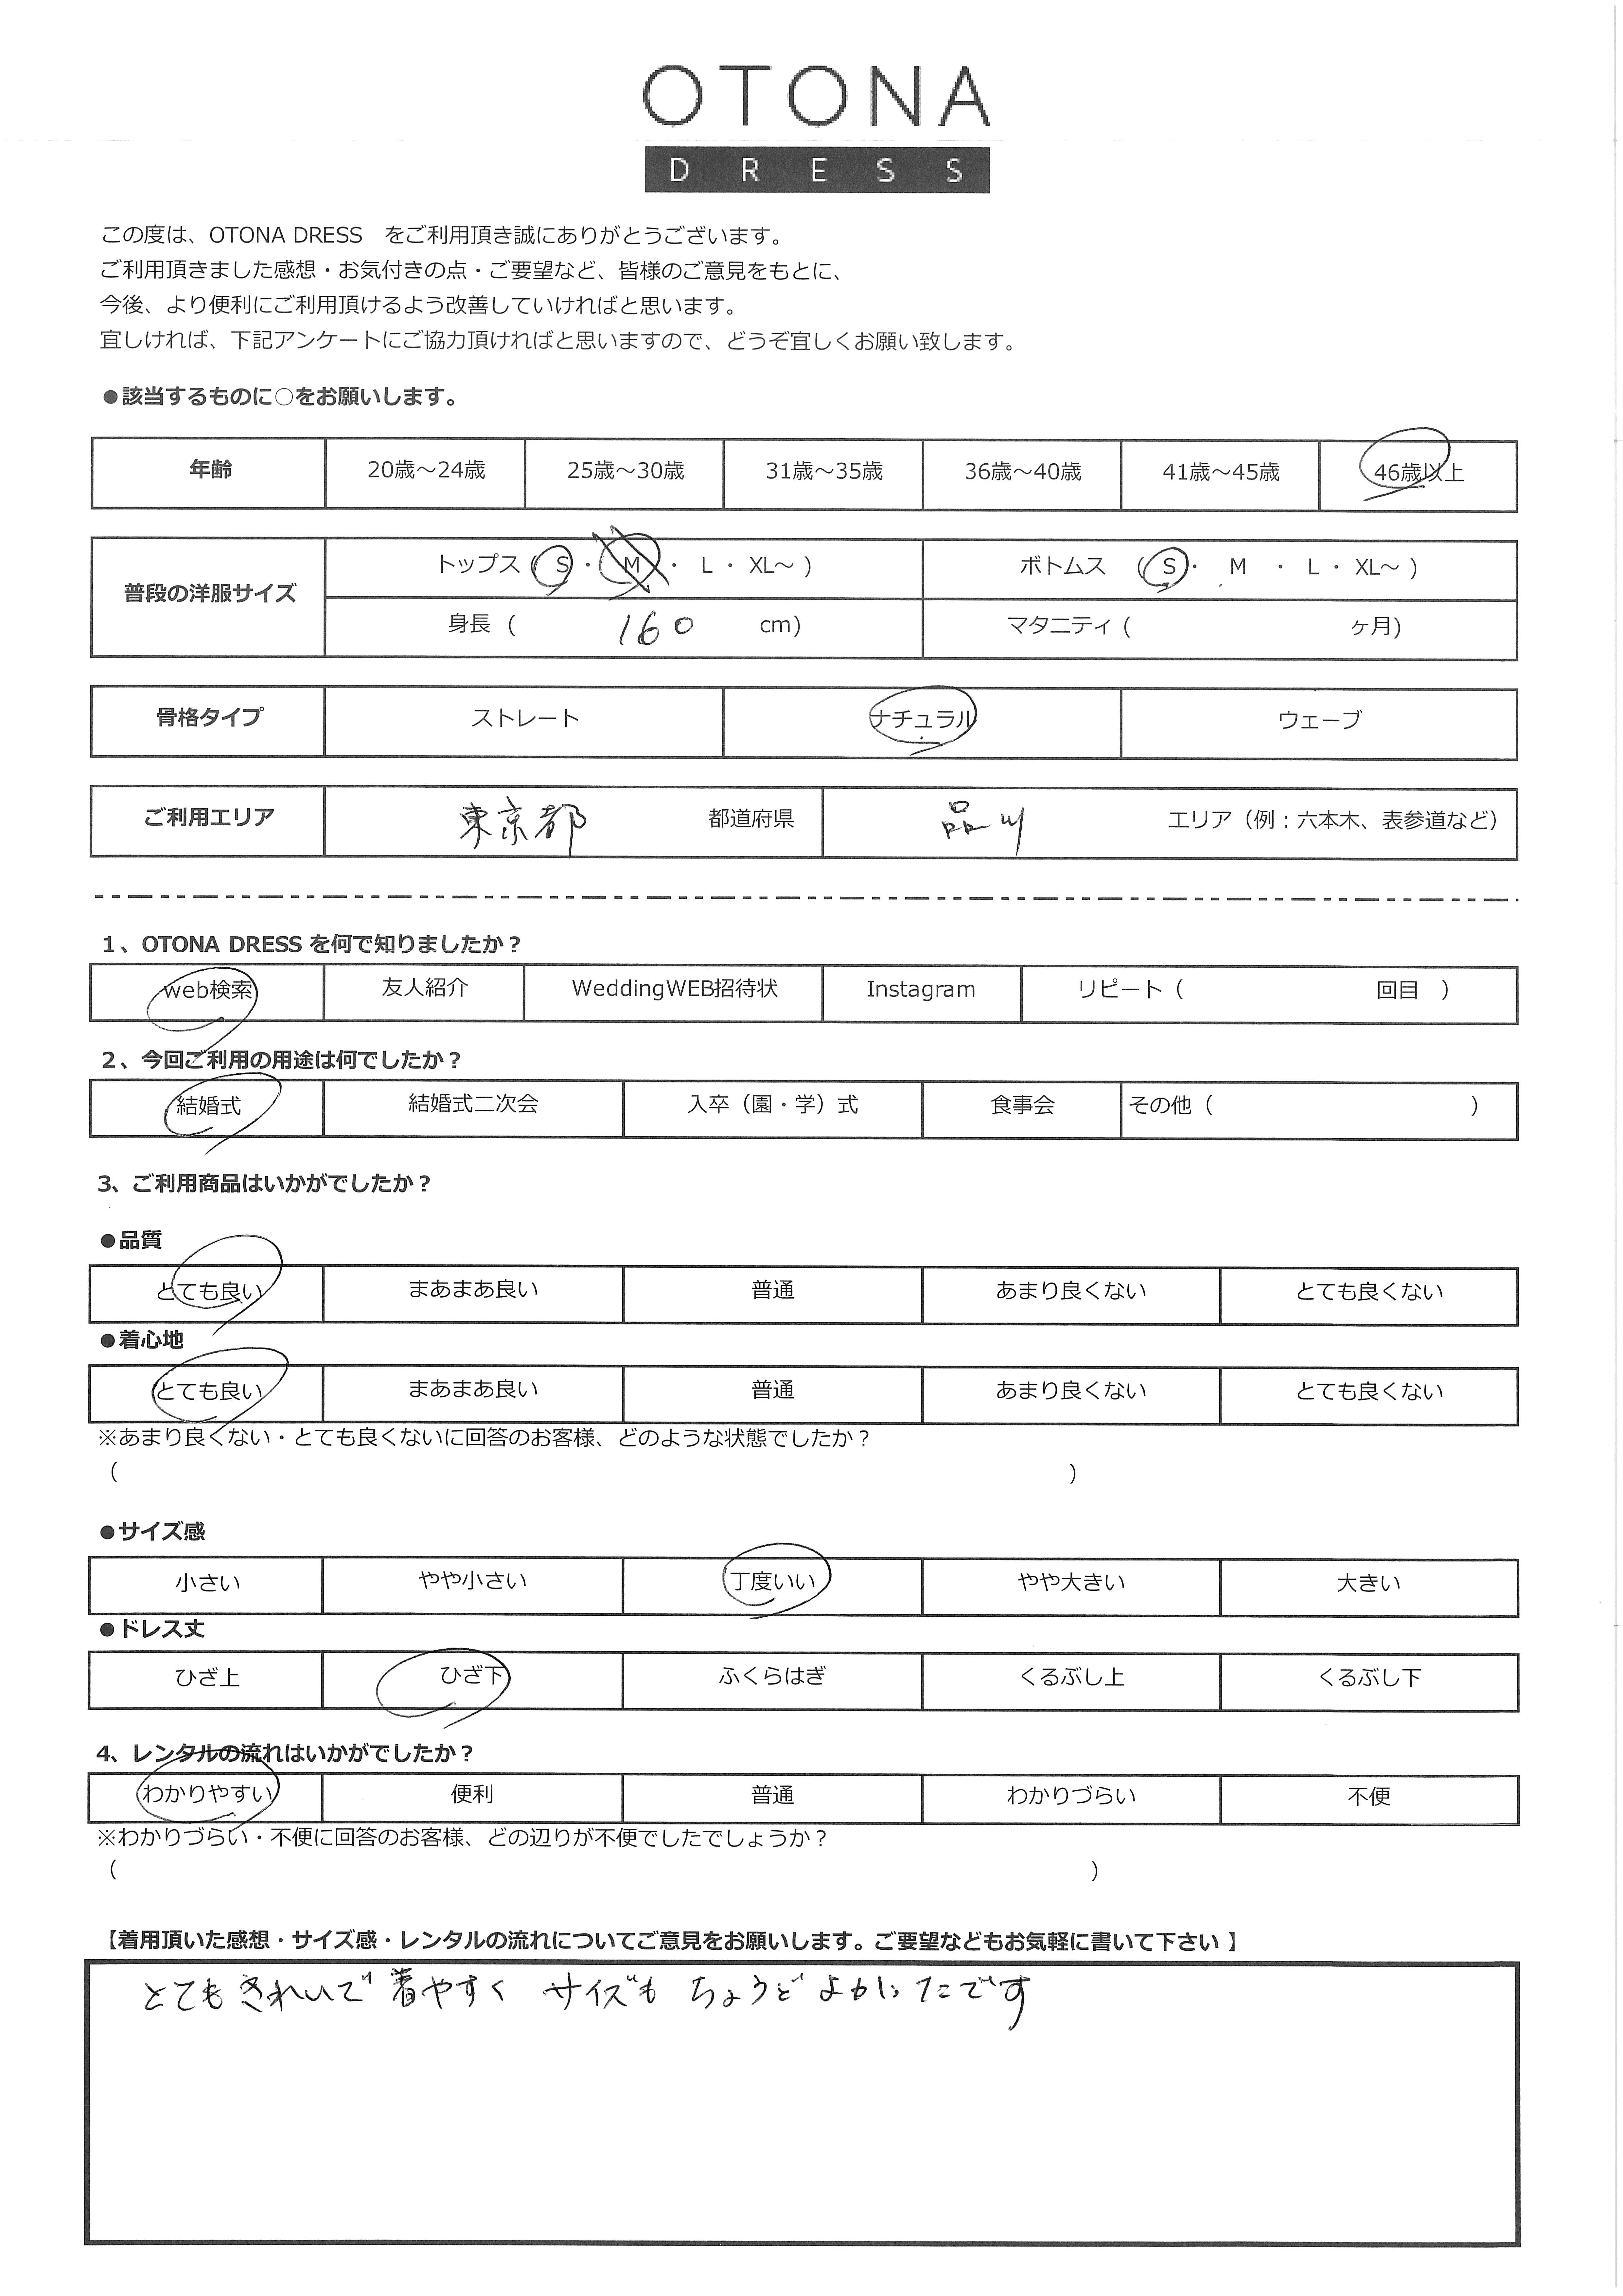 OTONA
DRESS
この度は、OTONA DRESS　をご利用頂き誠にありがとうございます。
ご利用頂きました感想・お気付きの点・ご要望など、皆様のご意見をもとに、
今後、より便利にご利用頂けるよう改善していければと思います。
宜しければ、下記アンケートにご協力頂ければと思いますので、どうぞ宜しくお願い致します。
●該当するものに○をお願いします。
年齢 20歳～24歳 25歳～30歳 31歳～35歳 36歳～40歳 41歳～45歳 46歳以上
普段の洋服サイズ トップス ( S ・ M ・ L ・ XL～ ) ボトムス ( S ・ M ・ L ・ XL～ )
身長 ( 160 cm) マタニティ ( ヶ月)
骨格タイプ ストレート ナチュラル ウェーブ
ご利用エリア 東京都 都道府県 品川 エリア（例：六本木、表参道など）
1、OTONA DRESS を何で知りましたか？
web検索 友人紹介 WeddingWEB招待状 Instagram リピート（ 回目 ）
2、今回ご利用の用途は何でしたか？
結婚式 結婚式二次会 入卒（園・学）式 食事会 その他（ ）
3、ご利用商品はいかがでしたか？
●品質
とても良い まあまあ良い 普通 あまり良くない とても良くない
●着心地
とても良い まあまあ良い 普通 あまり良くない とても良くない
※あまり良くない・とても良くないに回答のお客様、どのような状態でしたか？
( )
●サイズ感
小さい やや小さい 丁度いい やや大きい 大きい
●ドレス丈
ひざ上 ひざ下 ふくらはぎ くるぶし上 くるぶし下
4、レンタルの流れはいかがでしたか？
わかりやすい 便利 普通 わかりづらい 不便
※わかりづらい・不便に回答のお客様、どの辺りが不便でしたでしょうか？
( )
【着用頂いた感想・サイズ感・レンタルの流れについてご意見をお願いします。ご要望などもお気軽に書いて下さい 】
とてもきれいで着やすく サイズも ちょうどよかったです